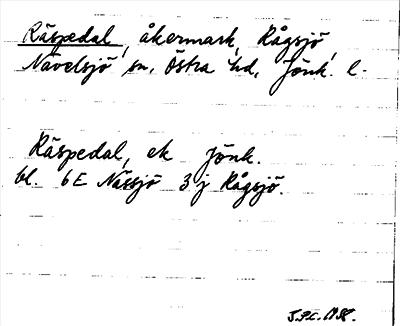 Räspedal, åkermark, Rågsjö,
Nävelsjö sn, Östra hd, Jönk. l.
Räspedal, ek Jönk.
bl. 6E Nässjö 3j Rågsjö.